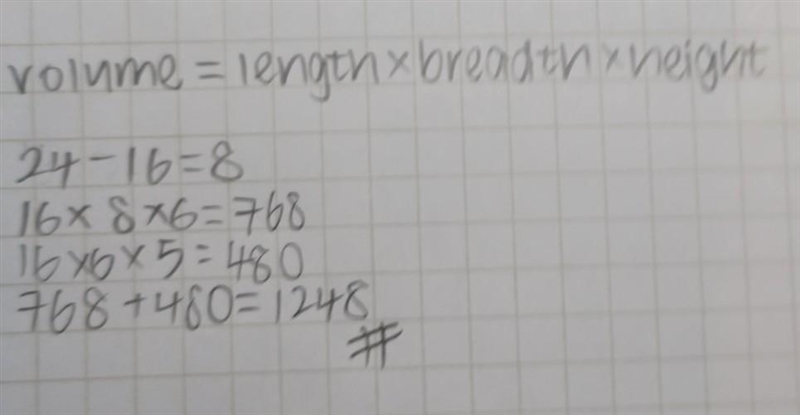 volume = length × breadth × height
24 - 16 = 8
16 × 8 × 6 = 768
16 × 6 × 5 = 480
768 + 480 = 1248
#